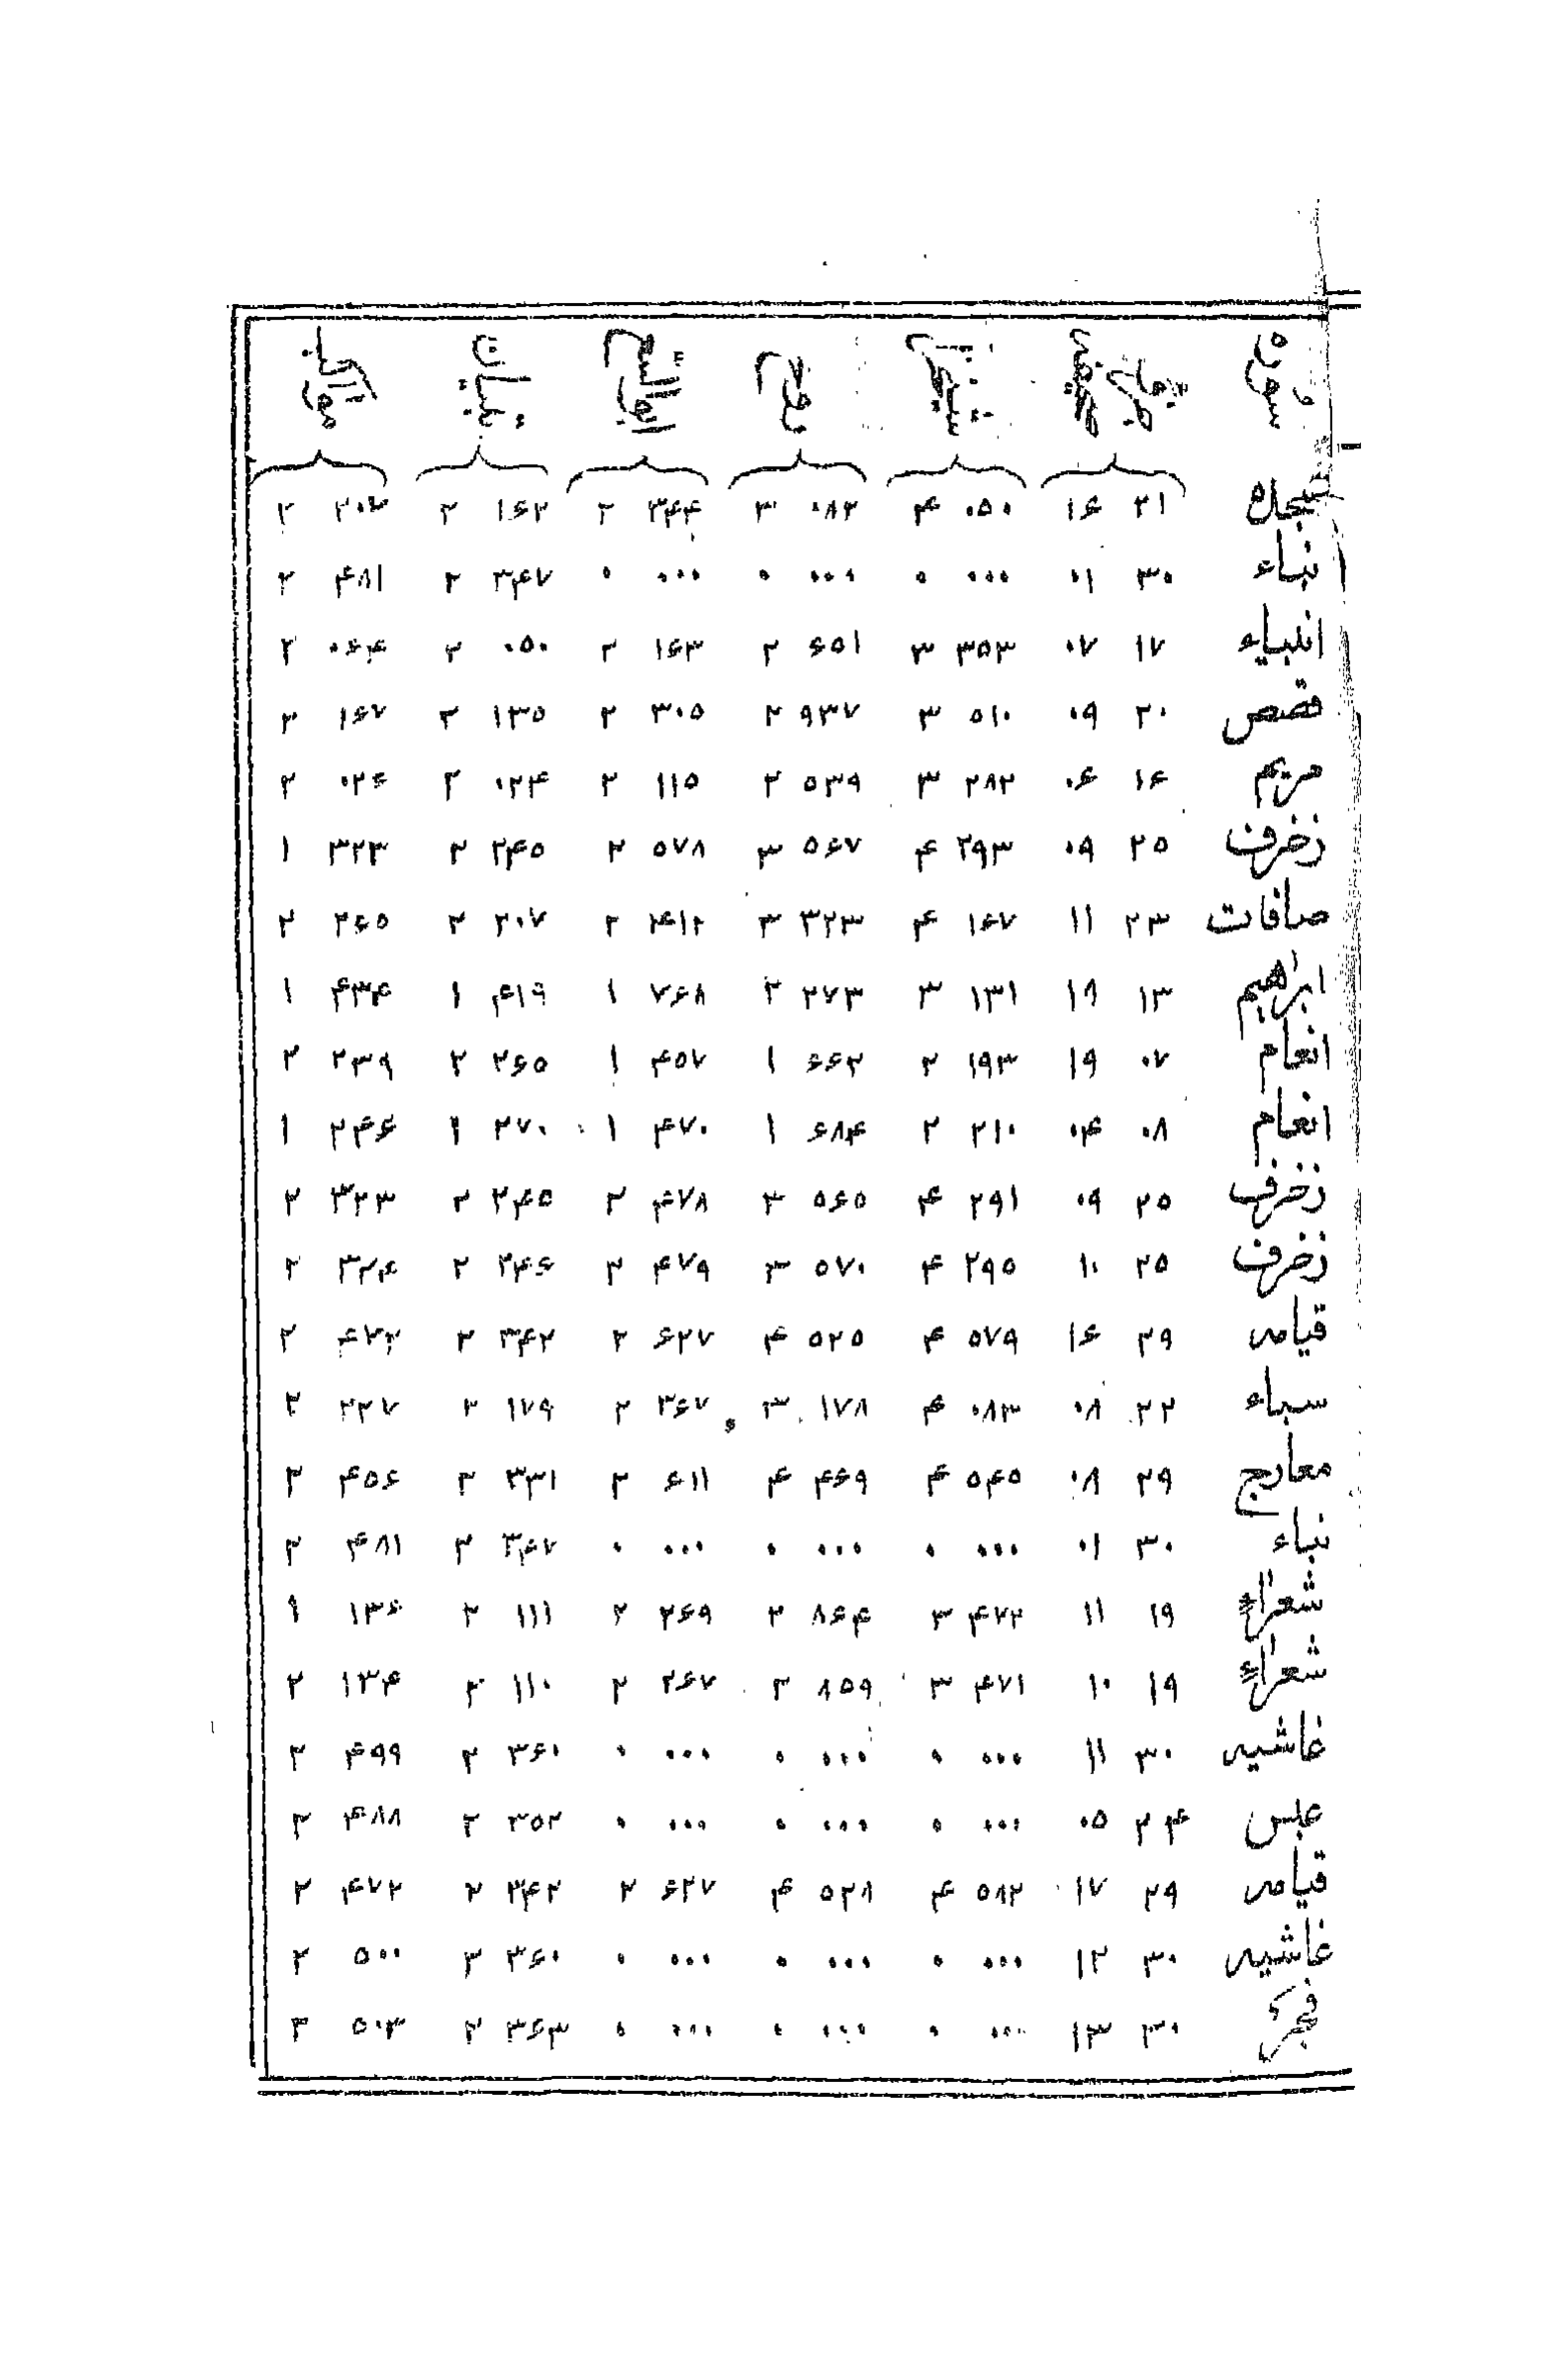 سوره
سجده ۲۱ ۱۶ ۰۵۰ ۴ ۰۸۲ ۳ ۳۴۴ ۲ ۱۶۲ ۲ ۲
نباء ۳۰ ۰۱ ۰۰۰ ۰ ۰۰۰ ۰ ۰۰۰ ۰ ۳۴۷ ۲ ۴۸۱ ۲
انبیاء ۱۷ ۰۷ ۳۵۳ ۳ ۶۵۱ ۲ ۱۶۳ ۲ ۰۵۰ ۲ ۰۶۴ ۲
قصص ۲۰ ۰۹ ۵۱۰ ۳ ۹۳۷ ۲ ۳۰۵ ۲ ۱۳۵ ۲ ۱۶۷ ۲
مریم ۱۶ ۰۶ ۲۸۲ ۳ ۵۳۹ ۲ ۱۱۵ ۲ ۰۲۴ ۲ ۰۲۶ ۲
زخرف ۲۵ ۰۹ ۲۹۳ ۴ ۵۶۷ ۳ ۵۷۸ ۲ ۲۴۵ ۲ ۳۲۳ ۱
صافات ۲۳ ۱۱ ۱۶۷ ۴ ۳۲۳ ۳ ۴۱۲ ۲ ۲۰۷ ۲ ۲۶۵ ۲
ابراهیم ۱۳ ۱۹ ۱۳۱ ۳ ۲۷۳ ۲ ۷۶۸ ۱ ۴۱۹ ۱ ۴۳۴ ۱
انعام ۰۷ ۱۹ ۱۹۳ ۲ ۶۶۲ ۱ ۴۵۷ ۱ ۲۶۵ ۲ ۲۳۹ ۲
انعام ۰۸ ۰۴ ۲۱۰ ۲ ۶۸۴ ۱ ۴۷۰ ۱ ۲۷۰ ۱ ۲۴۶ ۱
زخرف ۲۵ ۰۹ ۲۹۱ ۴ ۵۶۵ ۳ ۴۷۸ ۲ ۲۴۵ ۲ ۳۲۳ ۲
زخرف ۲۵ ۱۰ ۲۹۵ ۴ ۵۷۰ ۳ ۴۷۹ ۲ ۲۴۶ ۲ ۳۲۴ ۲
قیامه ۲۹ ۱۶ ۵۷۹ ۴ ۵۲۵ ۴ ۶۲۷ ۲ ۳۴۲ ۲ ۴۷۲ ۲
سباء ۲۲ ۰۸ ۰۸۳ ۴ ۱۷۸ ۳ ۳۶۷ ۲ ۱۷۹ ۲ ۲۲۷ ۲
معارج ۲۹ ۰۸ ۵۴۵ ۴ ۴۶۹ ۴ ۶۱۱ ۲ ۳۳۱ ۲ ۴۵۶ ۲
نباء ۳۰ ۰۱ ۰۰۰ ۰ ۰۰۰ ۰ ۰۰۰ ۰ ۳۴۷ ۲ ۴۸۱ ۲
شعراء ۱۹ ۱۱ ۴۷۲ ۳ ۸۶۴ ۲ ۲۶۹ ۲ ۱۱۱ ۲ ۱۳۶ ۱
شعراء ۱۹ ۱۰ ۴۷۱ ۳ ۸۵۹ ۲ ۲۶۷ ۲ ۱۱۰ ۲ ۱۳۴ ۲
غاشیه ۳۰ ۱۱ ۰۰۰ ۰ ۰۰۰ ۰ ۰۰۰ ۰ ۳۶۰ ۲ ۴۹۹ ۲
عبس ۲۴ ۰۵ ۰۰۰ ۰ ۰۰۰ ۰ ۰۰۰ ۰ ۳۵۲ ۲ ۴۸۸ ۲
قیامه ۲۹ ۱۷ ۵۸۲ ۴ ۵۲۸ ۴ ۶۲۷ ۲ ۳۴۲ ۲ ۴۷۲ ۲
غاشیه ۳۰ ۱۲ ۰۰۰ ۰ ۰۰۰ ۰ ۰۰۰ ۰ ۳۶۰ ۲ ۵۰۰ ۲
فجر ۳۰ ۱۳ ۰۰۰ ۰ ۰۰۰ ۰ ۰۰۰ ۰ ۳۶۳ ۲ ۵۰۳ ۲